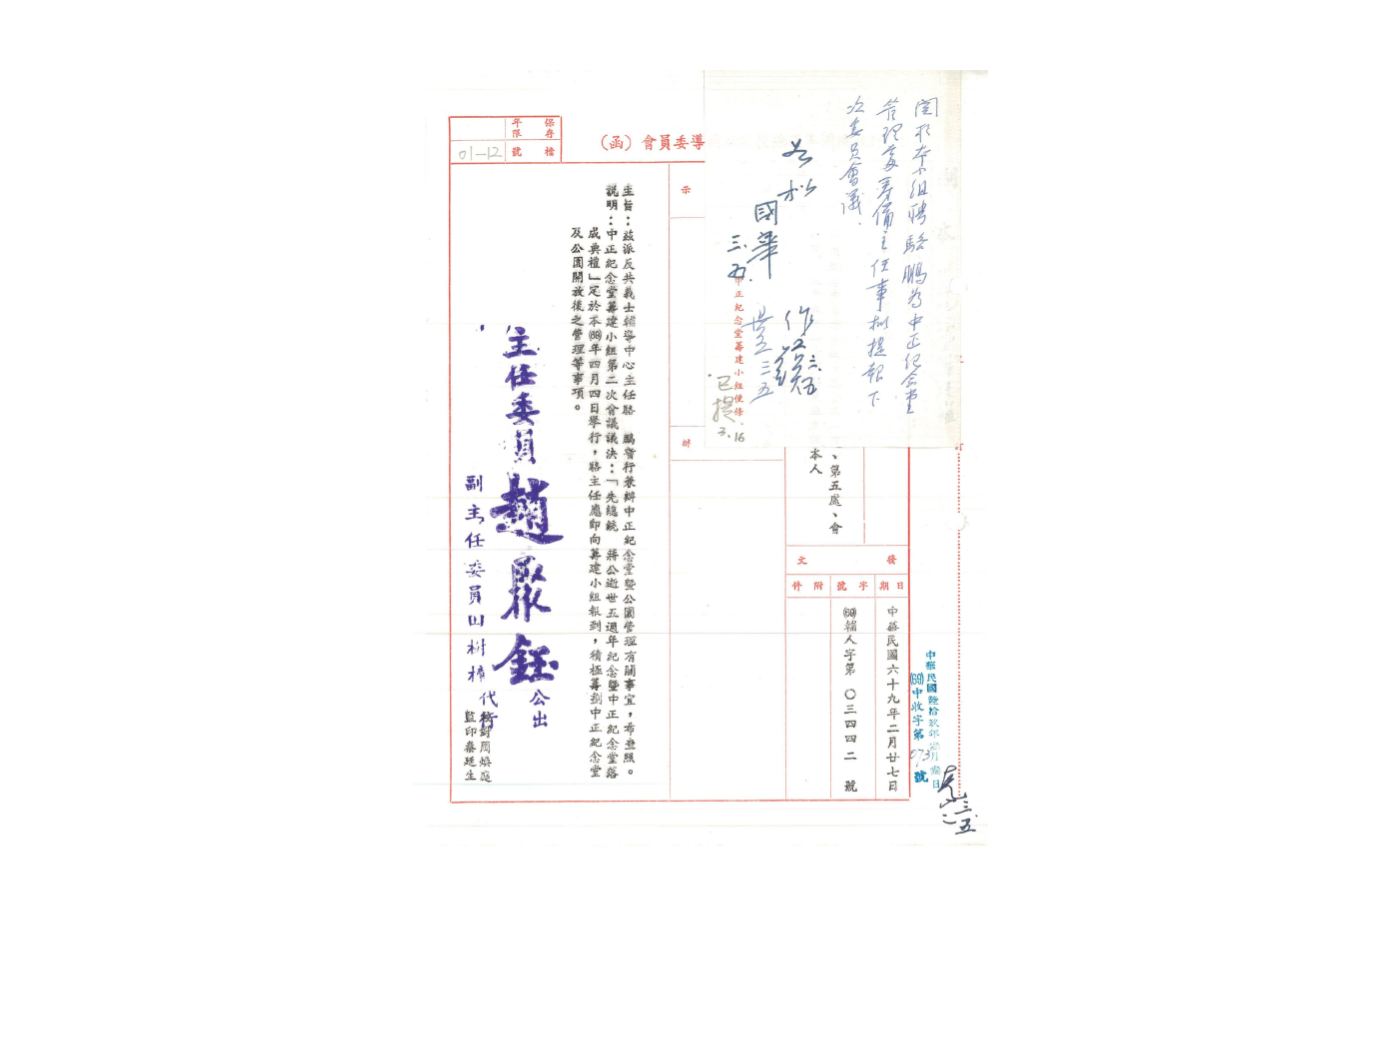 關於本小組聘駱鵬為中正紀念堂
管理處籌備主任事擬提報下
次委員會議.
國華
三.五.
作
三.五
三五
中正紀念堂籌建小組便條
已提
3.16
導委員會（函）
保存
年限
檔號
01-12
示
辦
、第五處、會
本人
發文
日期
字號
附件
中華民國六十九年二月廿七日
(69)輔人字第 〇三四四二 號
主旨：茲派反共義士輔導中心主任駱 鵬暫行兼辦中正紀念堂暨公園管理有關事宜，希查照。
說明：中正紀念堂籌建小組第二次會議議決：「先總統 蔣公逝世五週年紀念暨中正紀念堂落
成典禮」定於本(69)年四月四日舉行，駱主任應即向籌建小組報到，積極籌劃中正紀念堂
及公園開放後之管理等事項。
主任委員趙聚鈺
公出
副主任委員田樹樟代行
監印秦延生
(69)中收字第073號
三.五